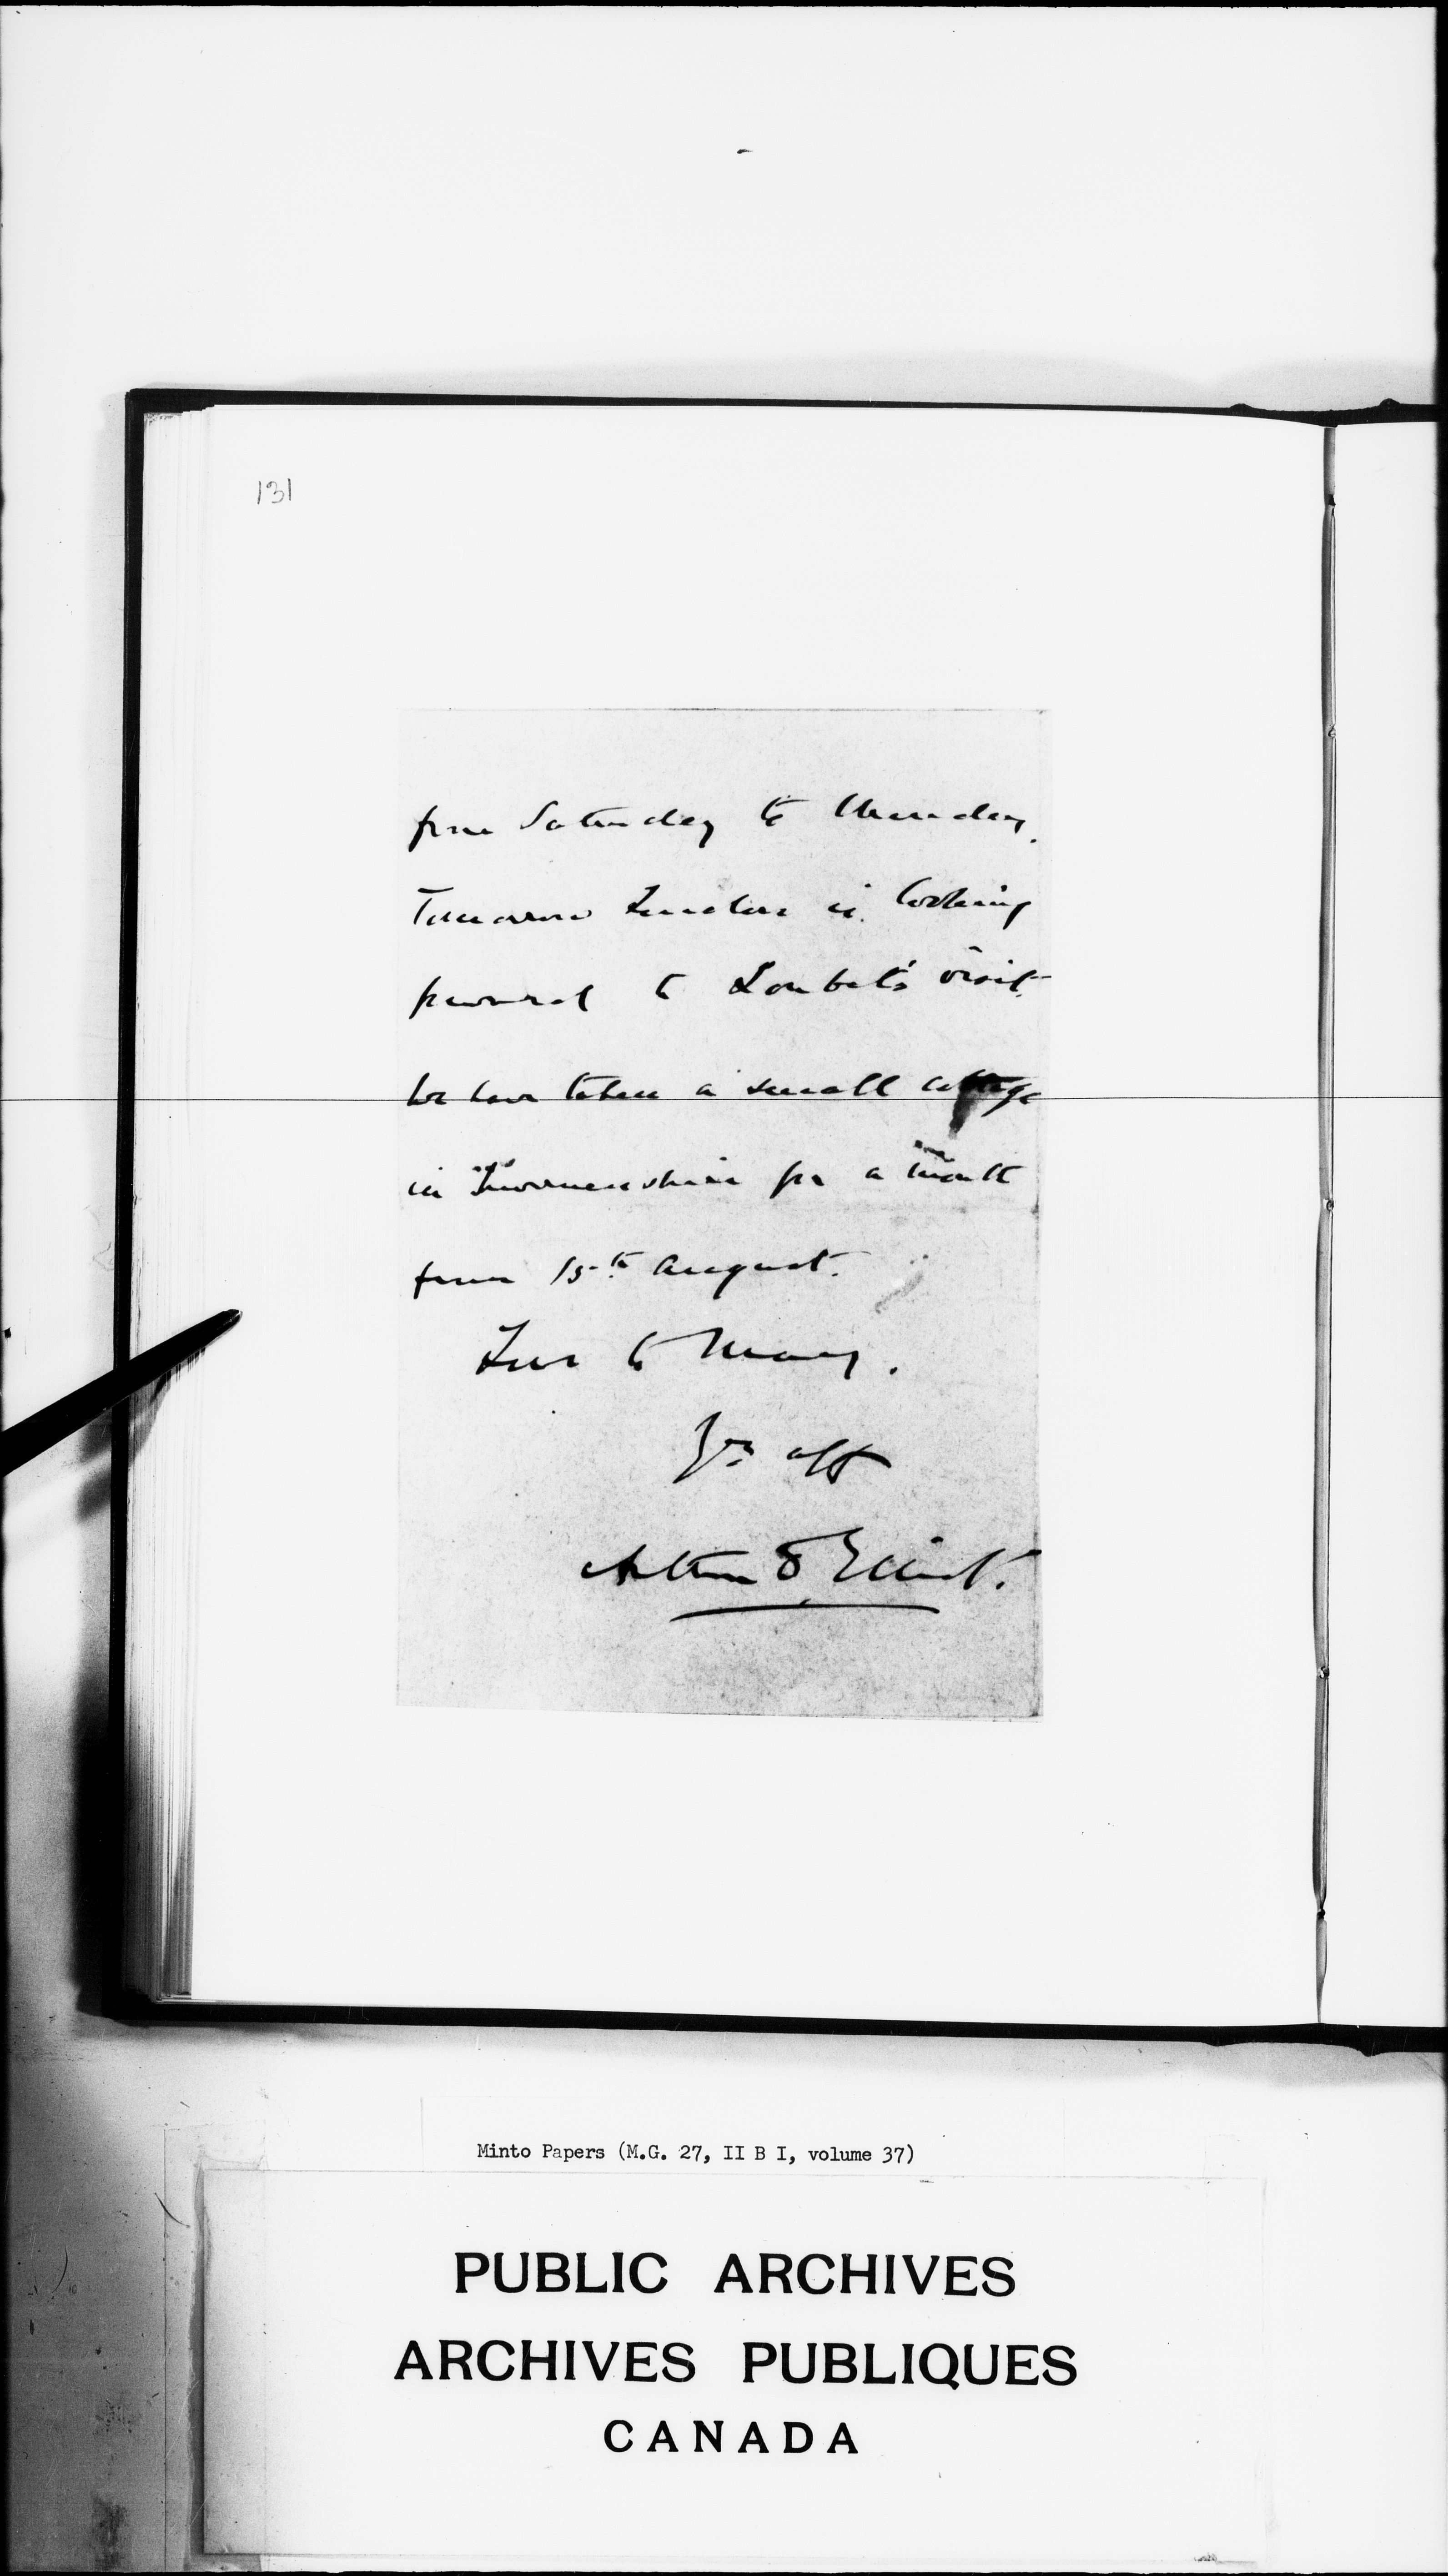 131
from Saturday to Monday.
Tomorrow London is looking
forward to Loubet's visit.
We have taken a small cottage
in Invernesshire for a month
from 15th August.
Love to Mary.
Yrs aff
Arthur D Elliot.
Minto Papers (M.G. 27, II B I, volume 37)
PUBLIC ARCHIVES
ARCHIVES PUBLIQUES
CANADA